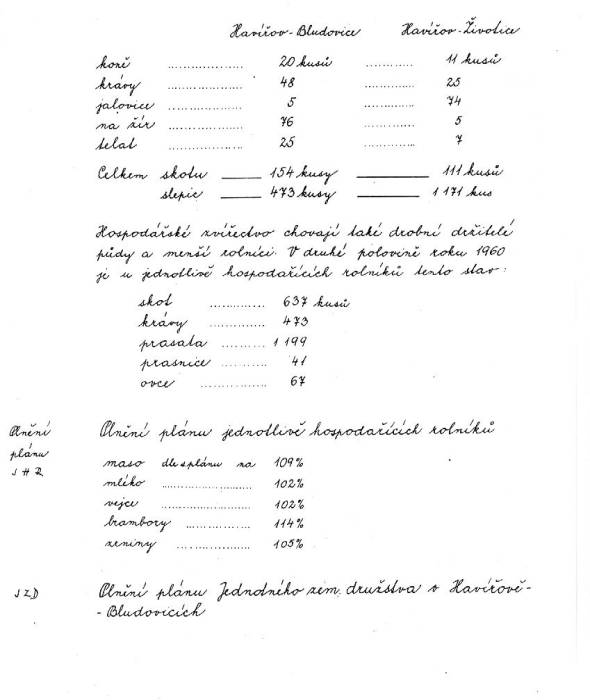 Havířov-Bludovice Havířov-Životice
koně .................... 20 kusů ............. 11 kusů
krávy .................... 48 ............. 25
jalovice .................... 5 ............. 74
na žír .................... 76 ............. 5
telat .................... 25 ............. 7
Celkem skotu ____ 154 kusy ____ 111 kusů
slepic ____ 473 kusy ____ 1 171 kus
Hospodářské zvířectvo chovají také drobní držitelé
půdy a menší rolníci. V druhé polovině roku 1960
je u jednotlivě hospodařících rolníků tento stav:
skot .............. 637 kusů
krávy .............. 473
prasata ........... 1 199
prasnice .............. 41
ovce ................. 67
Plnění plánu jednotlivě hospodařících rolníků
Plnění
plánu
J H R
maso dle plánu na 109%
mléko ........................ 102%
vejce ........................ 102%
brambory ................. 114%
zeniny ................... 105%
JZD
Plnění plánu Jednotného zem. družstva v Havířově-
-Bludovicích